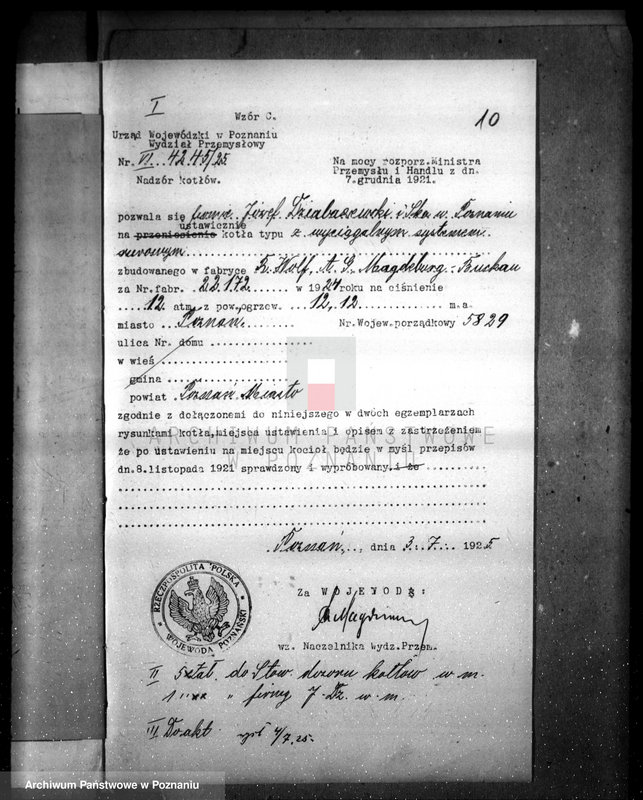 I
Wzór C.
10
Urząd Wojewódzki w Poznaniu
Wydział Przemysłowy
Nr. VI 4245/25
Nadzór kotłów.
Na mocy rozporz. Ministra
Przemysłu i Handlu z dn.
7.grudnia 1921.
pozwala się firmie Józef Dziabaszewski i Ska w Poznaniu
ustawicznie
na przeniesienie kotła typu z wyciągalnym systemem
rurowym
zbudowanego w fabryce R. Wolf, A. G. Magdeburg-Buckau
za Nr.fabr. 22.172 w 1924 roku na ciśnienie
12 atm. z pow.ogrzew. 12,12 m.a.
miasto Poznań Nr.Wojew.porządkowy 5829
ulica Nr. domu
w wieś
gmina
powiat Poznań Miasto
zgodnie z dołączonemi do niniejszego w dwóch egzemplarzach
rysunkami kotła, miejsca ustawienia i opisem z zastrzeżeniem
że po ustawieniu na miejscu kocioł będzie w myśl przepisów
dn.8.listopada 1921 sprawdzony i wypróbowany i że
Poznań, dnia 3.7. 1925
Za WOJEWODĘ:
wz. Naczelnika Wydz.Przem.
RZECZPOSPOLITA POLSKA
WOJEWODA POZNAŃSKI
II 5 zał. do Stow. dozoru kotłów w m.
1 " firmy J. Dz. w. m.
III Do akt
4/7.25.
ARCHIWUM PAŃSTWOWE
W POZNANIU
Archiwum Państwowe w Poznaniu